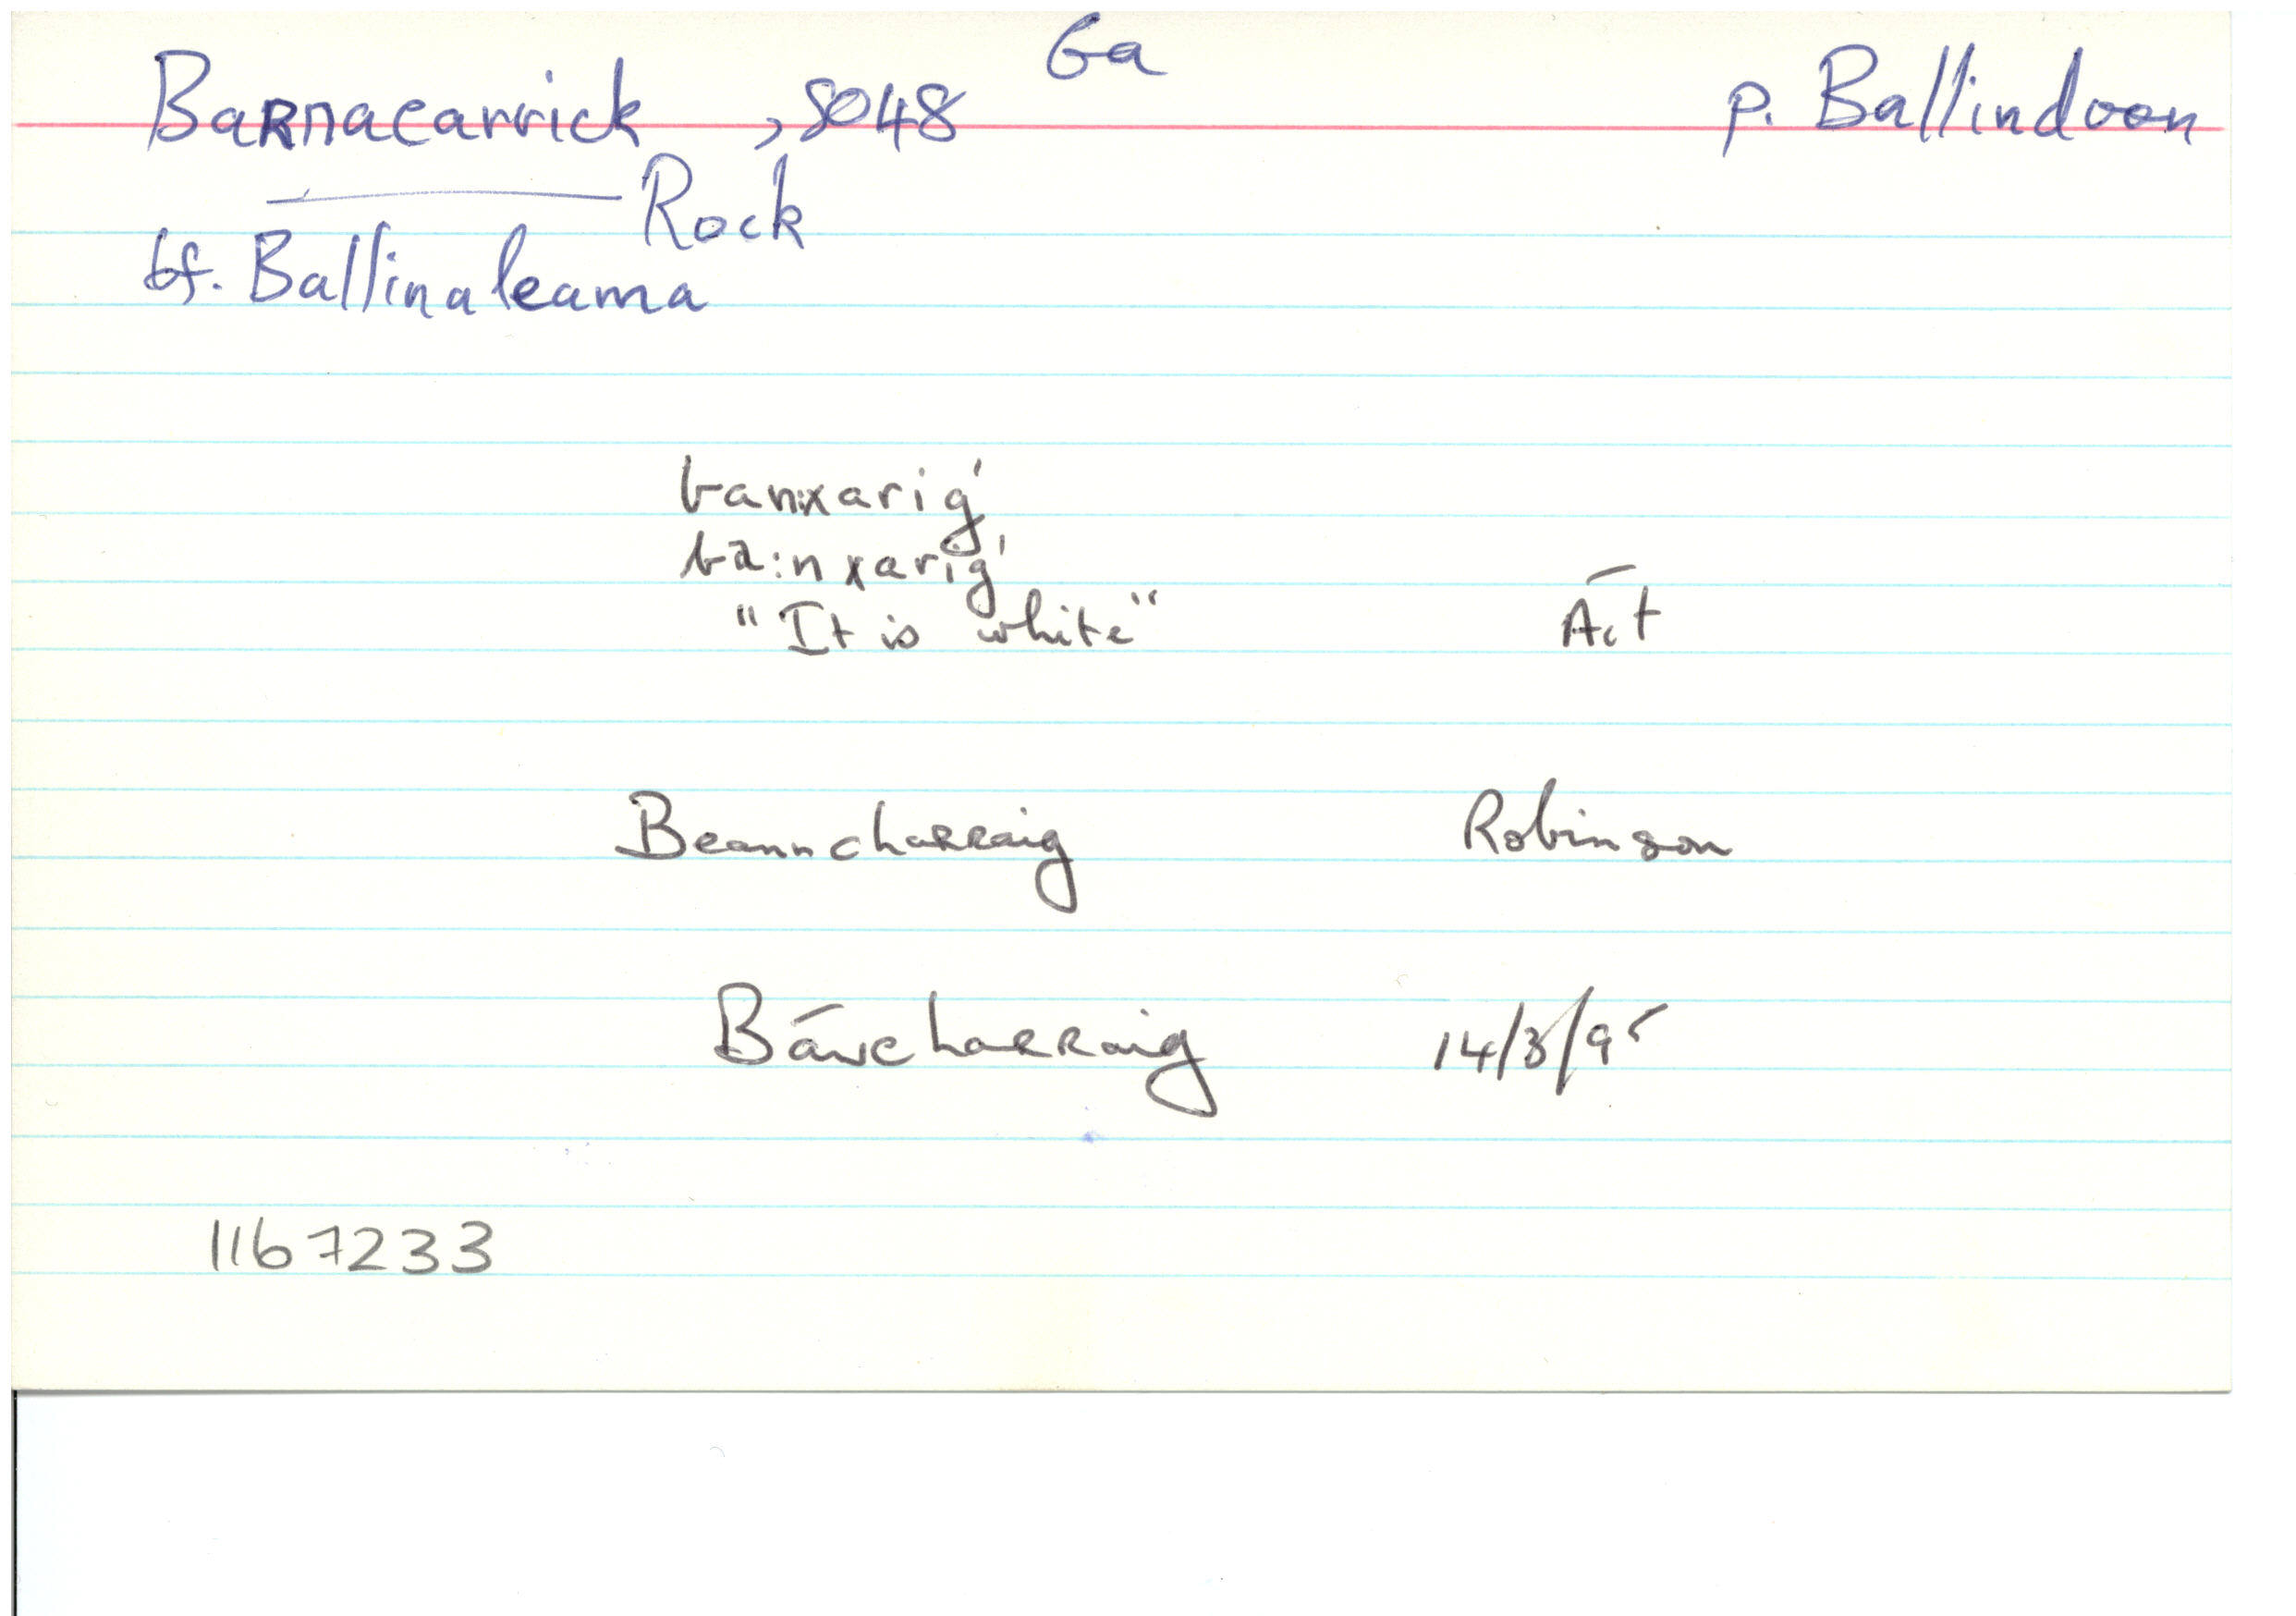 Barnacarrick , S048 Ga p. Ballindoon
Rock
bf. Ballinaleama
banxarig'
ba:nxarig'
"It is white" Áit
Beanncharraig Robinson
Báncharraig 14/3/95
1167233